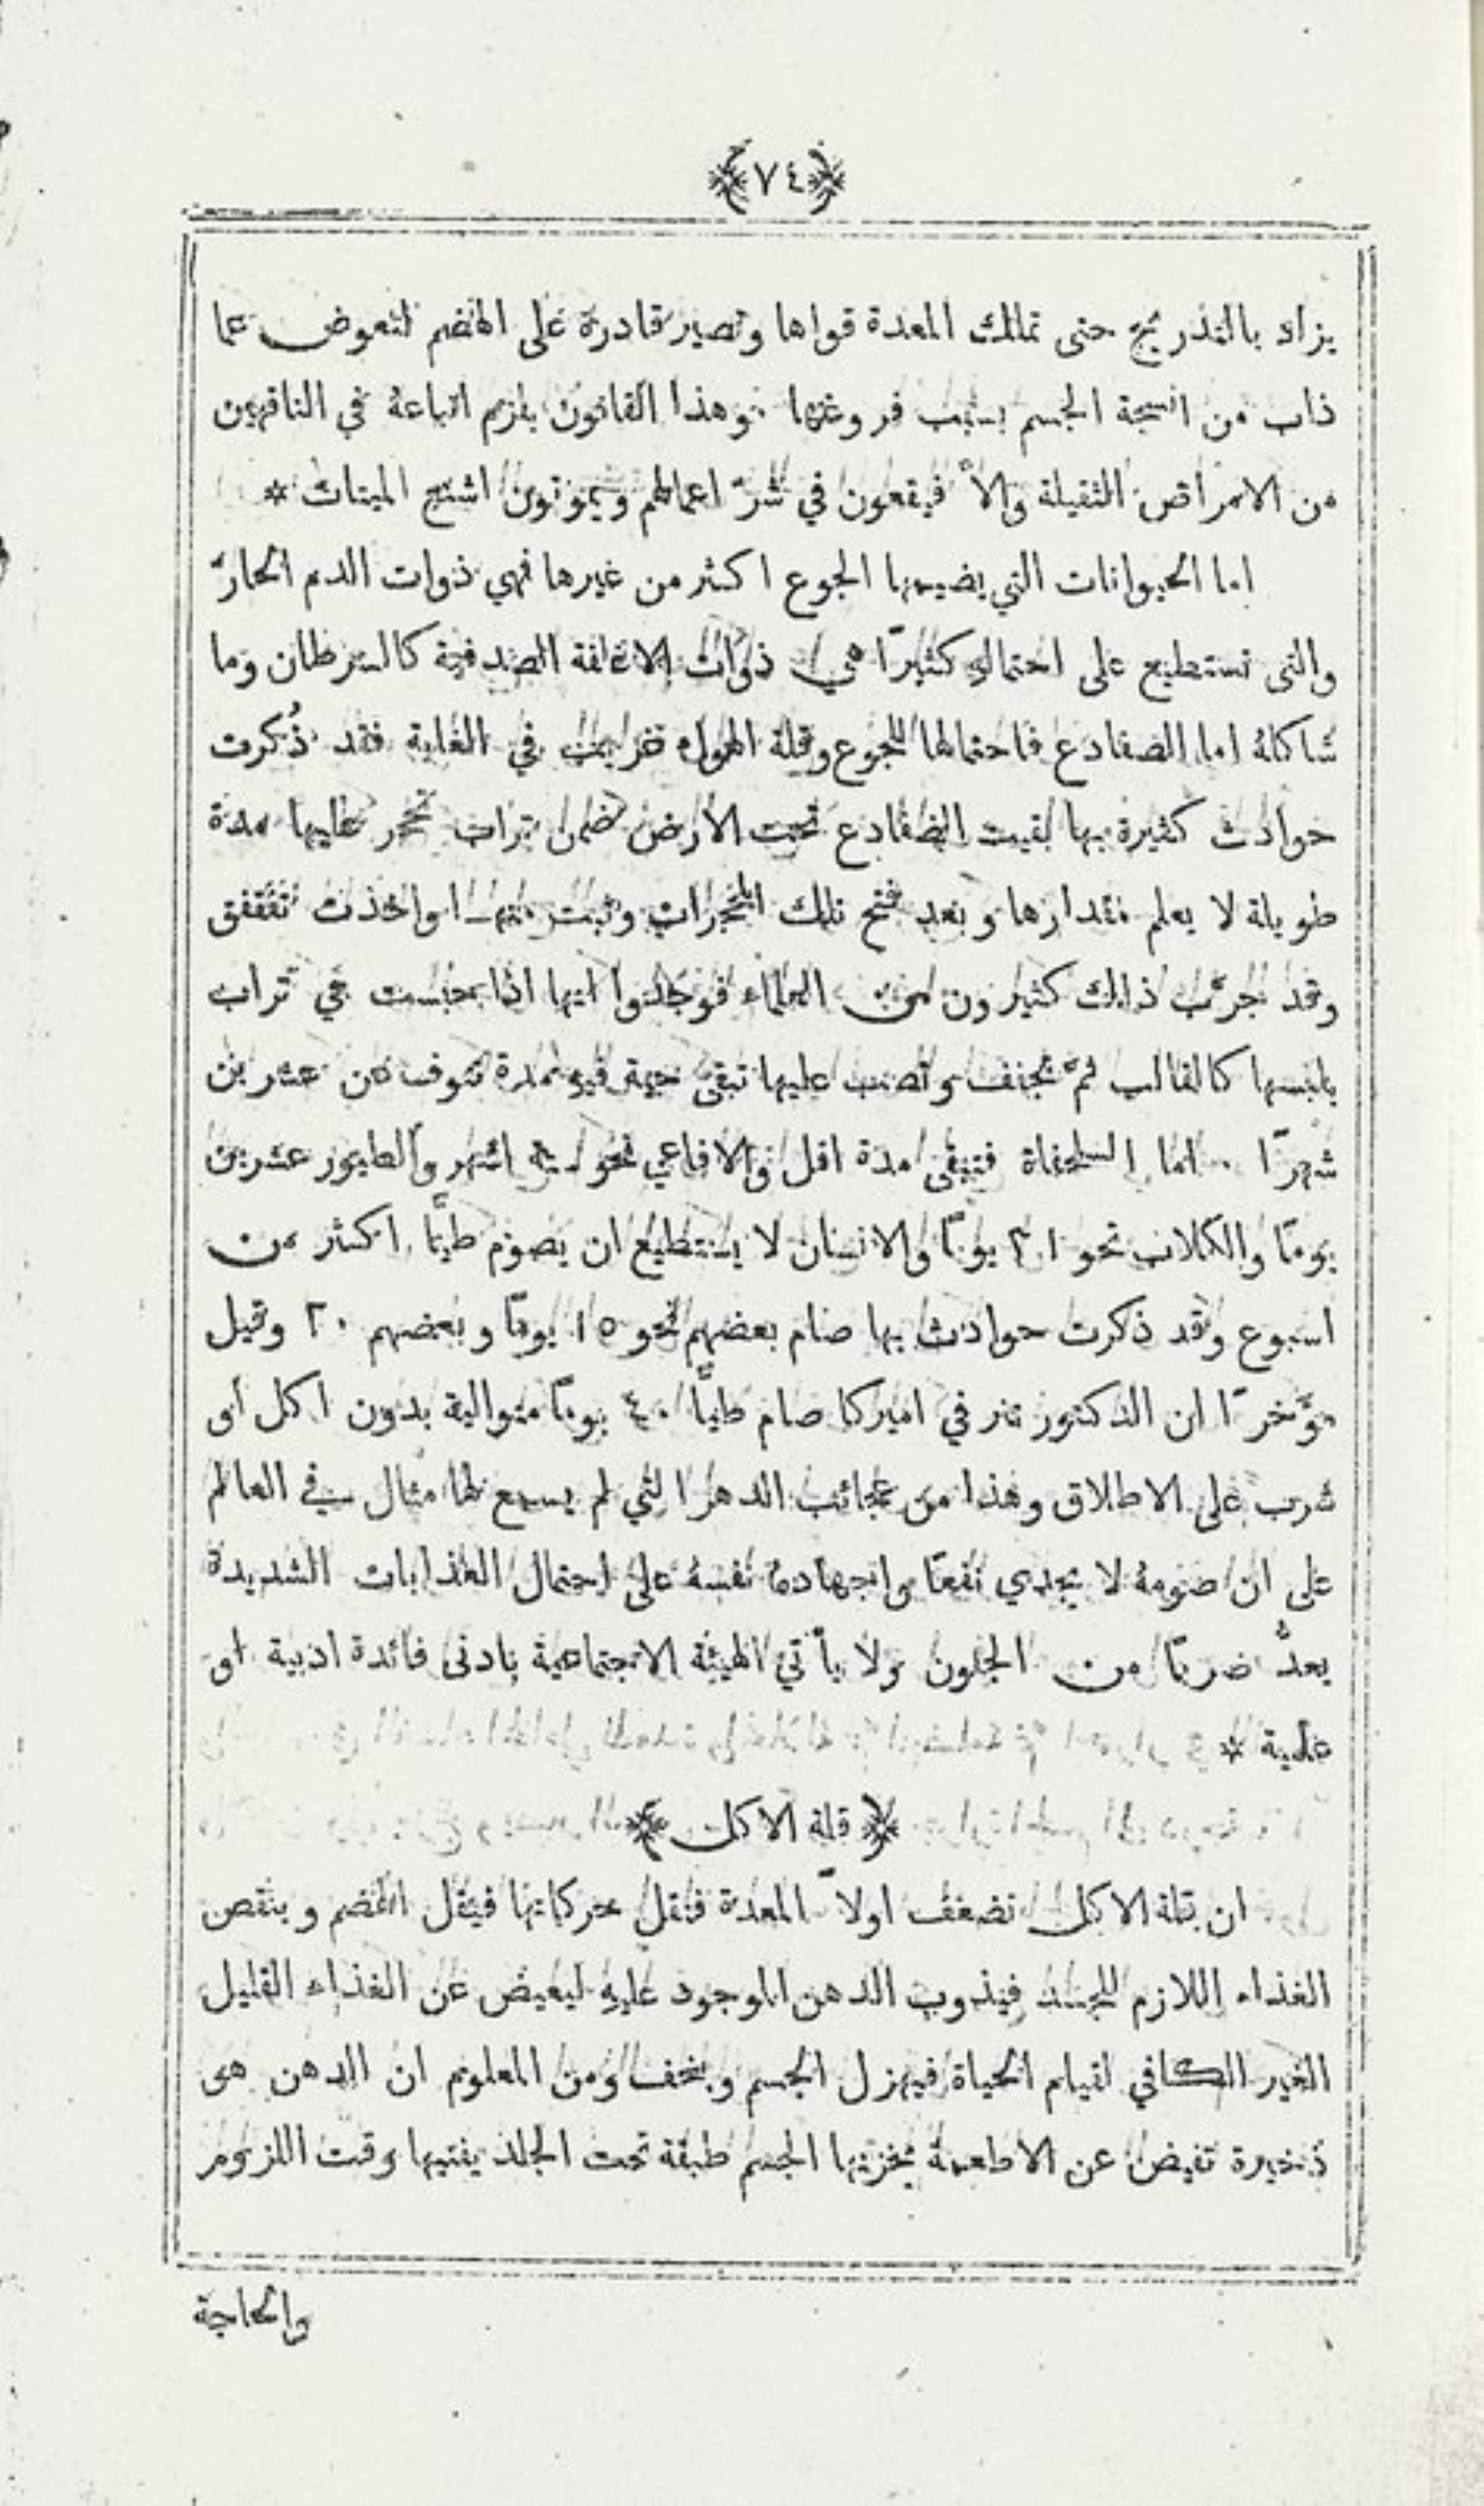 ﴿٧٤﴾
يزاد بالتدريج حتى تمالك المعدة قواها وتصير قادرة على الهضم لتعوض عما
ذاب من انسجة الجسم بسبب فروغها . وهذا القانون يلزم اتباعهُ في الناقهين
من الامراض الثقيلة والاَّ فيقعون في شرّ اعمالهم ويموتون اشنع الميتات *
اما الحيوانات التي يضيمها الجوع اكثر من غيرها فهي ذوات الدم الحارّ
والتى تستطيع على احتمالهِ كثيرًا هي ذوات الاغلفة الصدفية كالسرطان وما
شاكلهُ اما الضفادع فاحتمالها للجوع وقلة الهواء غريب في الغاية فقد ذُكرت
حوادث كثيرة بها بقيت الضفادع تحت الارض ضمن تراب تحجر عليها مدة
طويلة لا يعلم مقدارها وبعد فتح تلك المتحجرات وثبت منها واخذت تنقنق
وقد جرَّب ذلك كثيرون من العلماء فوجدوا انها اذا حبست في تراب
يلبسها كالقالب ثمَّ يجفف وتصب عليها تبقى حية فيهِ مدة تنوف عن عشرين
شهرًا . اما السلحفاة فتبقى مدة اقل والافاعي نحو اشهر والطيور عشرين
يومًا والكلاب نحو يومًا والانسان لا يستطيع ان يصوم طيًّا اكثر من
اسبوع وقد ذكرت حوادث بها صام بعضهم نحو ١٥ يومًا وبعضهم ٢٠ وقيل
مؤَخرًا ان الدكتور تنر في اميركا صام طيًّا ٤٠ يومًا متوالية بدون اكل او
شرب على الاطلاق وهذا من عجائب الدهر التي لم يسمع لها مثال في العالم
على ان صومهُ لا يجدي نفعًا واجهادهُ نفسهُ على احتمال العذابات الشديدة
يعدُّ ضربًا من الجنون ولا يأتي الهيئة الاجتماعية بادنى فائدة ادبية او
علمية *
﴿ قلة الاكل ﴾
ان قلة الاكل تضعف اولاً المعدة فتقل حركاتها فيقل الهضم وينقص
الغذاء اللازم للجسد فيذوب الدهن الموجود عليهِ ليعيض عن الغذاء القليل
الغير الكافي لقيام الحياة فيهزل الجسم وينحف ومن المعلوم ان الدهن هو
ذخيرة تفيض عن الاطعمة يخزنها الجسم طبقة تحت الجلد يفنيها وقت اللزوم
والحاجة